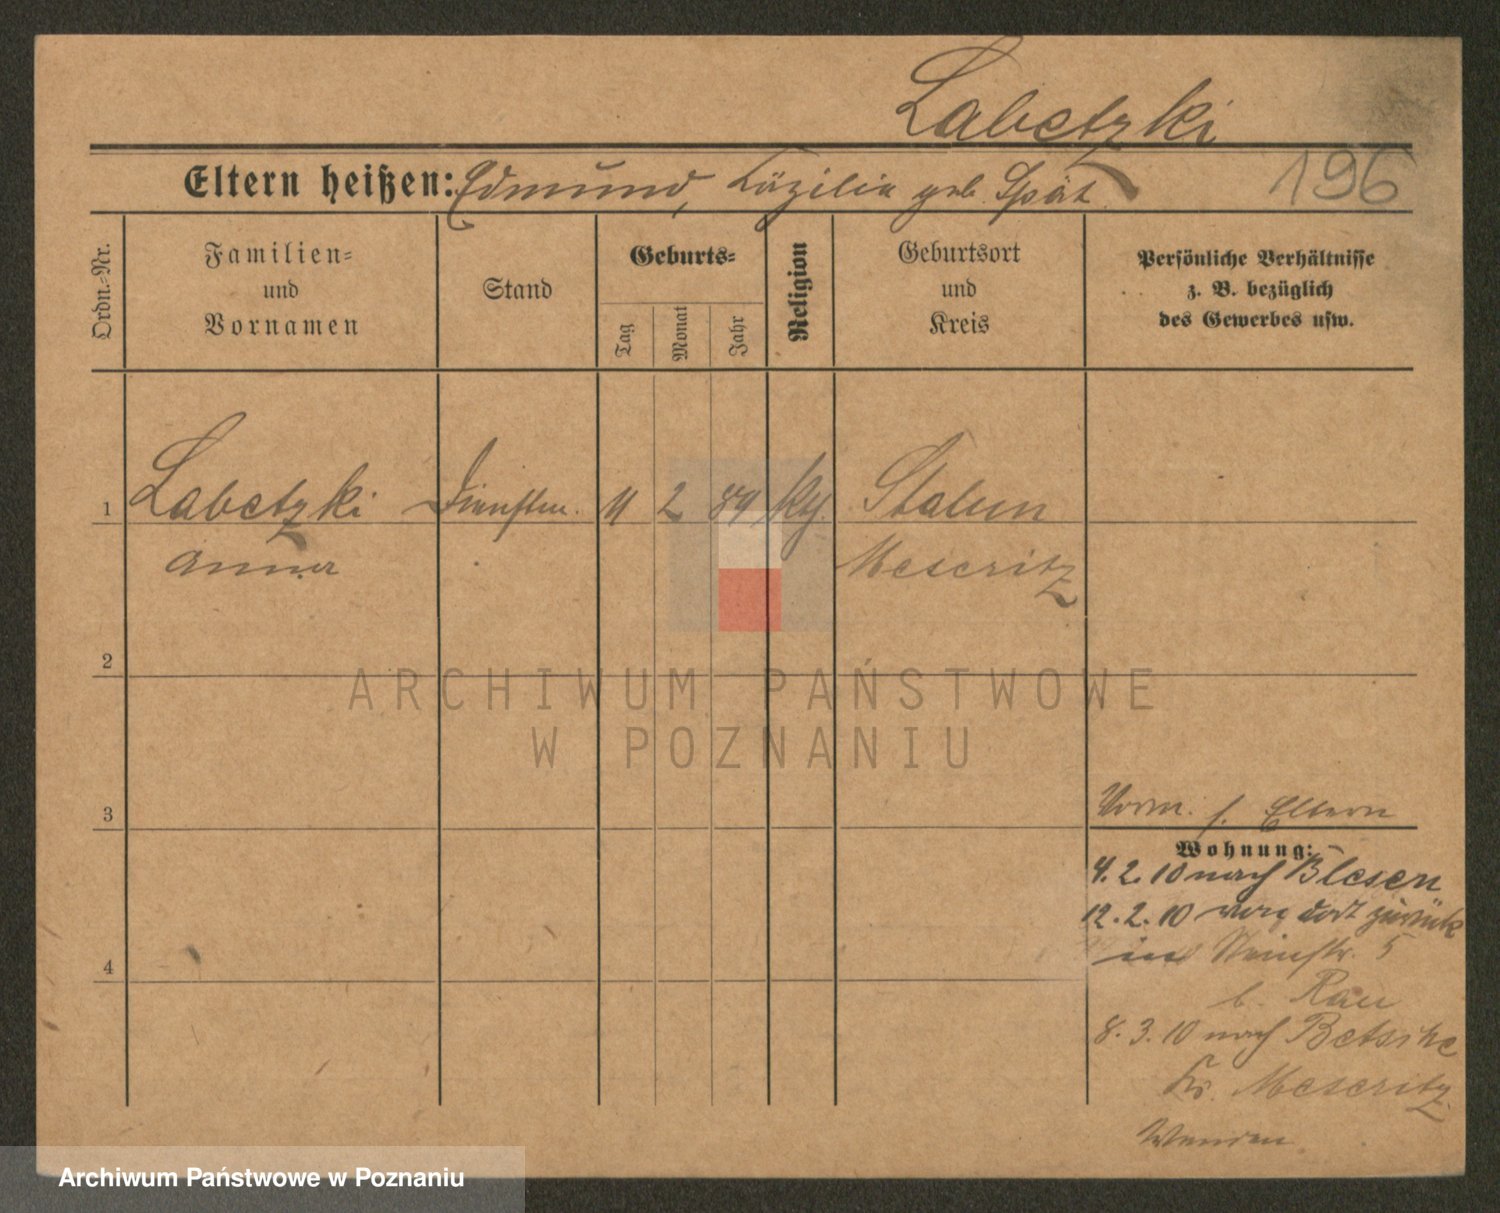 Labetzki
Eltern heißen: Edmund, Cäzilie geb. Spät
196
Ordn.-Nr.
Familien-
und
Vornamen
Stand
Geburts-
Tag
Monat
Jahr
Religion
Geburtsort
und
Kreis
Persönliche Verhältnisse
z. B. bezüglich
des Gewerbes usw.
1
Labetzki
Dienstm.
11
2
89
kth.
Stalun
Anna
Meseritz
2
ARCHIWUM PAŃSTWOWE
W POZNANIU
3
Vorm. s. Eltern
Wohnung:
4. 2. 10 nach Blesen
12. 2. 10 von dort zurück
in Steinstr. 5
b. Rau
4
8. 3. 10 nach Betsche
Kr. Meseritz
Wenden
Archiwum Państwowe w Poznaniu